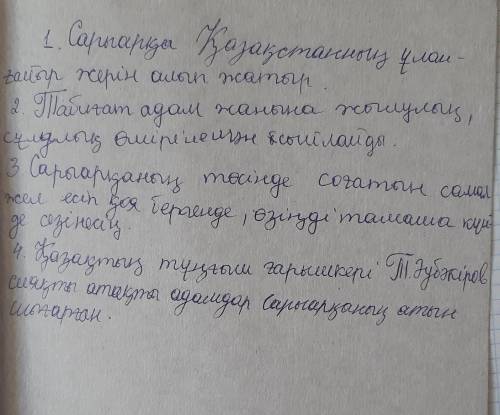 1. Сарыарқа Қазақстанның ұлан-
ғайыр жерін алып жатыр.
2. Табиғат адам жанына жылулық,
сұлулық өмірілешін сыйлайды.
3 Сарыарқаның төсінде соғатын самал
жел есіп қоя бергенде, өзіңді тамаша күй
де сезінесің.
4. Қазақтың тұңғыш ғарышкері Т. Әубәкіров
сияқты атақты адамдар Сарыарқаның атын
шығарған.